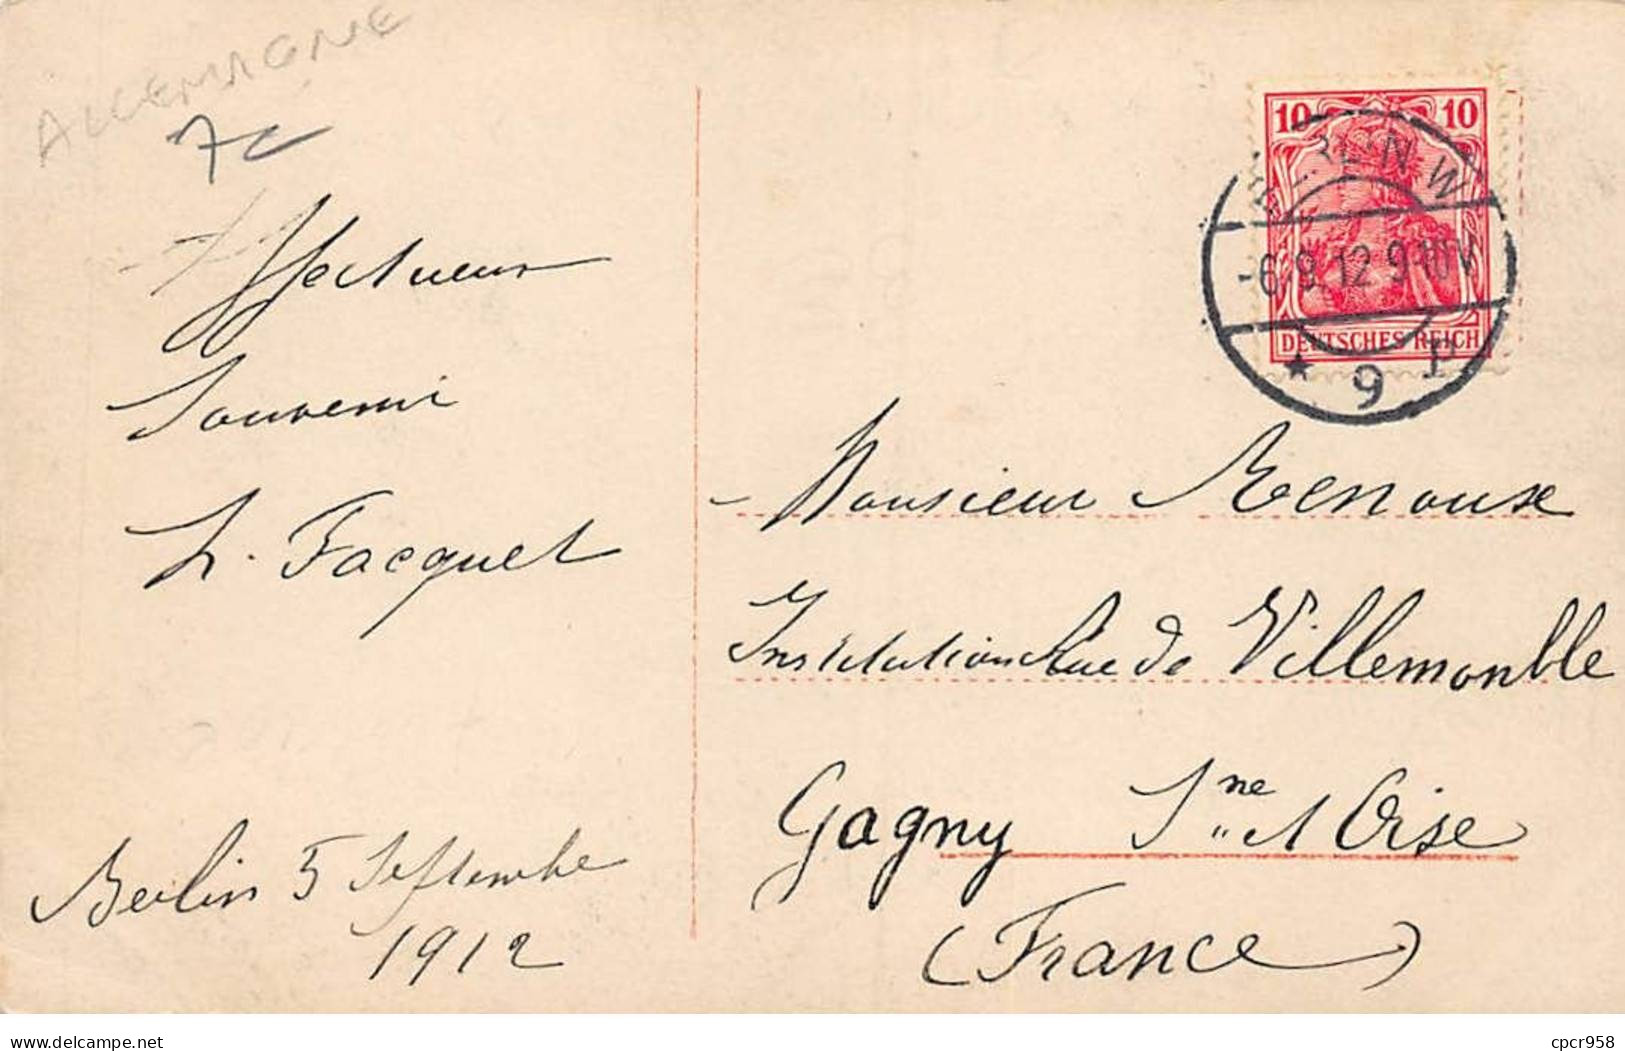 ALLEMAGNE
7c
Affectueux
Souvenir
L. Facquet
Berlin 5 Septembre
1912
10 10
DEUTSCHES REICH
BERLIN W
-6.9.12 9-10V
* 9 p
Monsieur Renoux
Institution Rue de Villemonble
Gagny Sne et Oise
(France)
www.delcampe.net
cpcr958